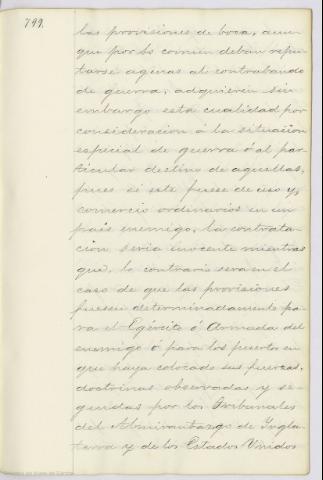 799.
las provisiones de boca, aun
que por lo comun deban repu
tarse agenas al contrabando
de guerra, adquieren sin
embargo esta cualidad por
consideracion á la situacion
especial de guerra ó al par
ticular destino de aquellas,
pues si este fuese de uso y
comercio ordinarios en un
pais enemigo, la contrata-
cion seria inocente mientras
que, lo contrario sera en el
caso de que las provisiones
fuesen determinadamente pa-
ra el Egército ó Armada del
enemigo ó para los puertos en
que haya colocado sus fuerzas,
doctrinas observadas y se-
guidas por los Tribunales
del Almirantazgo de Ingla-
terra y de los Estados Unidos